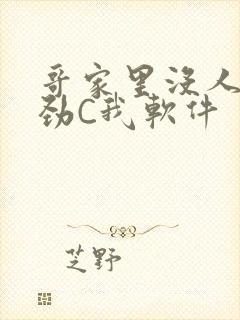 哥家里没人
劲C我软件
芝野